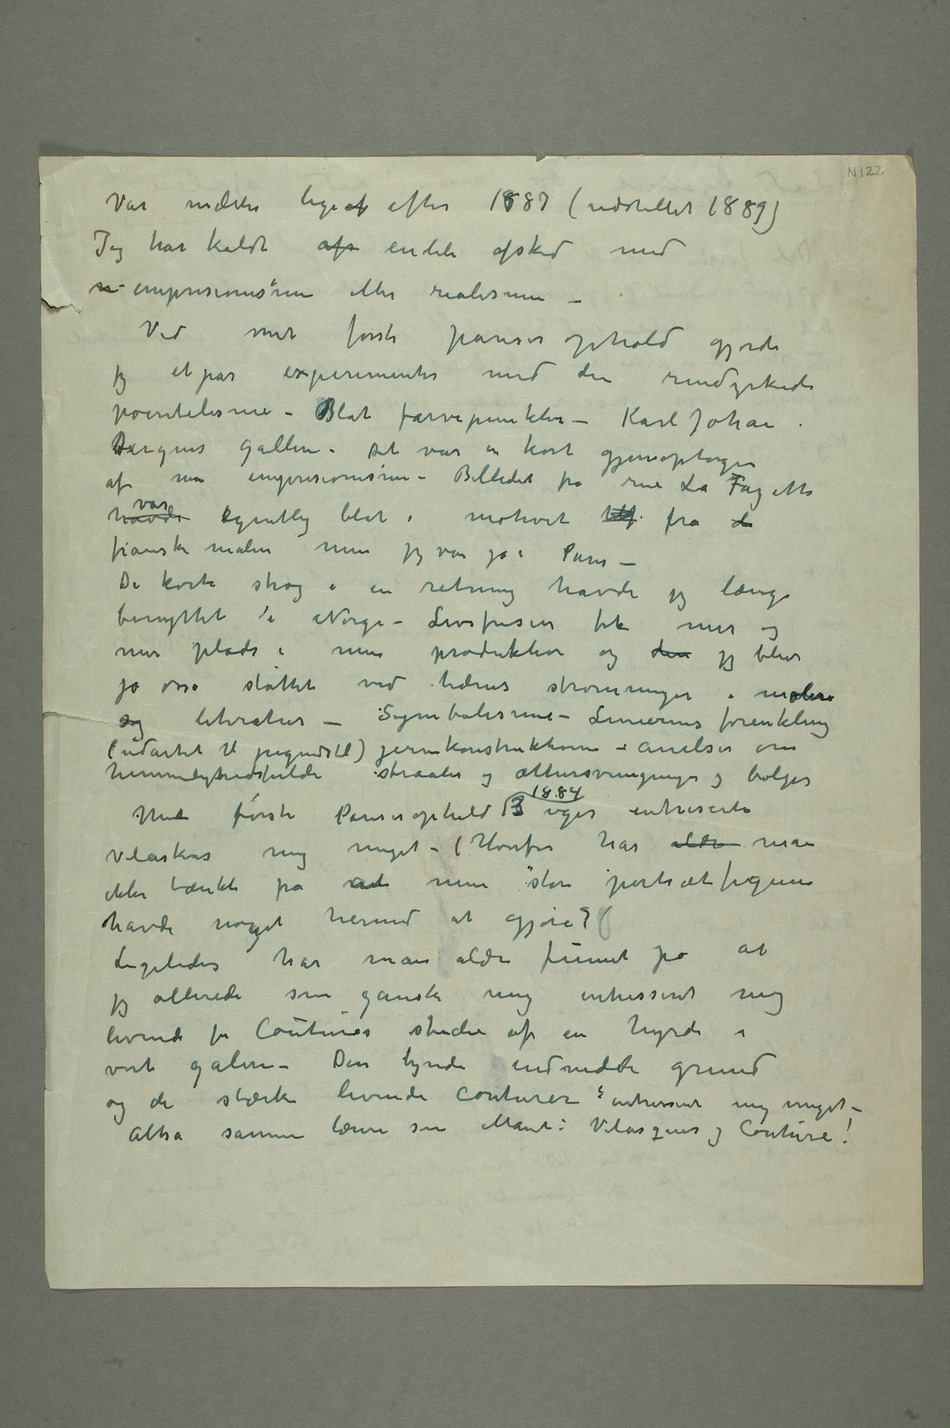 N 122
Vår malt ligeaf efter 1887 (udstillet 1889)
Jeg har kaldt afs endeli afsked med
n impresionismen eller realismen –
Ved mit første pariserophold gjorde
jeg et par experimenter med den rendyrkede
pointelisme – Blot farvepunkter – Karl Johan.
Bergens galleri. Det var en kort gjenoptagen
af min impresionisme – Billedet fra rue La Fayette
havde var egentlig blot i motivet fra d
franske malere men jeg var jo i Paris –
De korte strøg i en retning havde jeg længe
benyttet i Norge – Livsfrisen fik mer og
mer plads i min produktion og den jeg blev
jo også støttet ved tidens strømninger i maleri
og literatur – Symbolisme – Liniernes forenkling
(udartet til jugendstil) jernkonstruktion – anelser om
hemmelighedsfulde straaler og æthersvingninger og bølger
Med første Pariserophold 3 uger 1884 intreserte
Velaskes mig meget – (Hvorfor har aldri man
ikke tænkt på at mine store portrætfigurer
havde noget hermed at gjøre?(
Ligeledes har man aldri funnet på at
jeg allerede som ganske ung intresseret mig
levende for Coutures studie af en hyrde i
vort galeri – Den tynde indvidde grund
og de stærke levende conturer intreseret mig meget –
Altså samme lærere som Manet: Velasques og Couture!